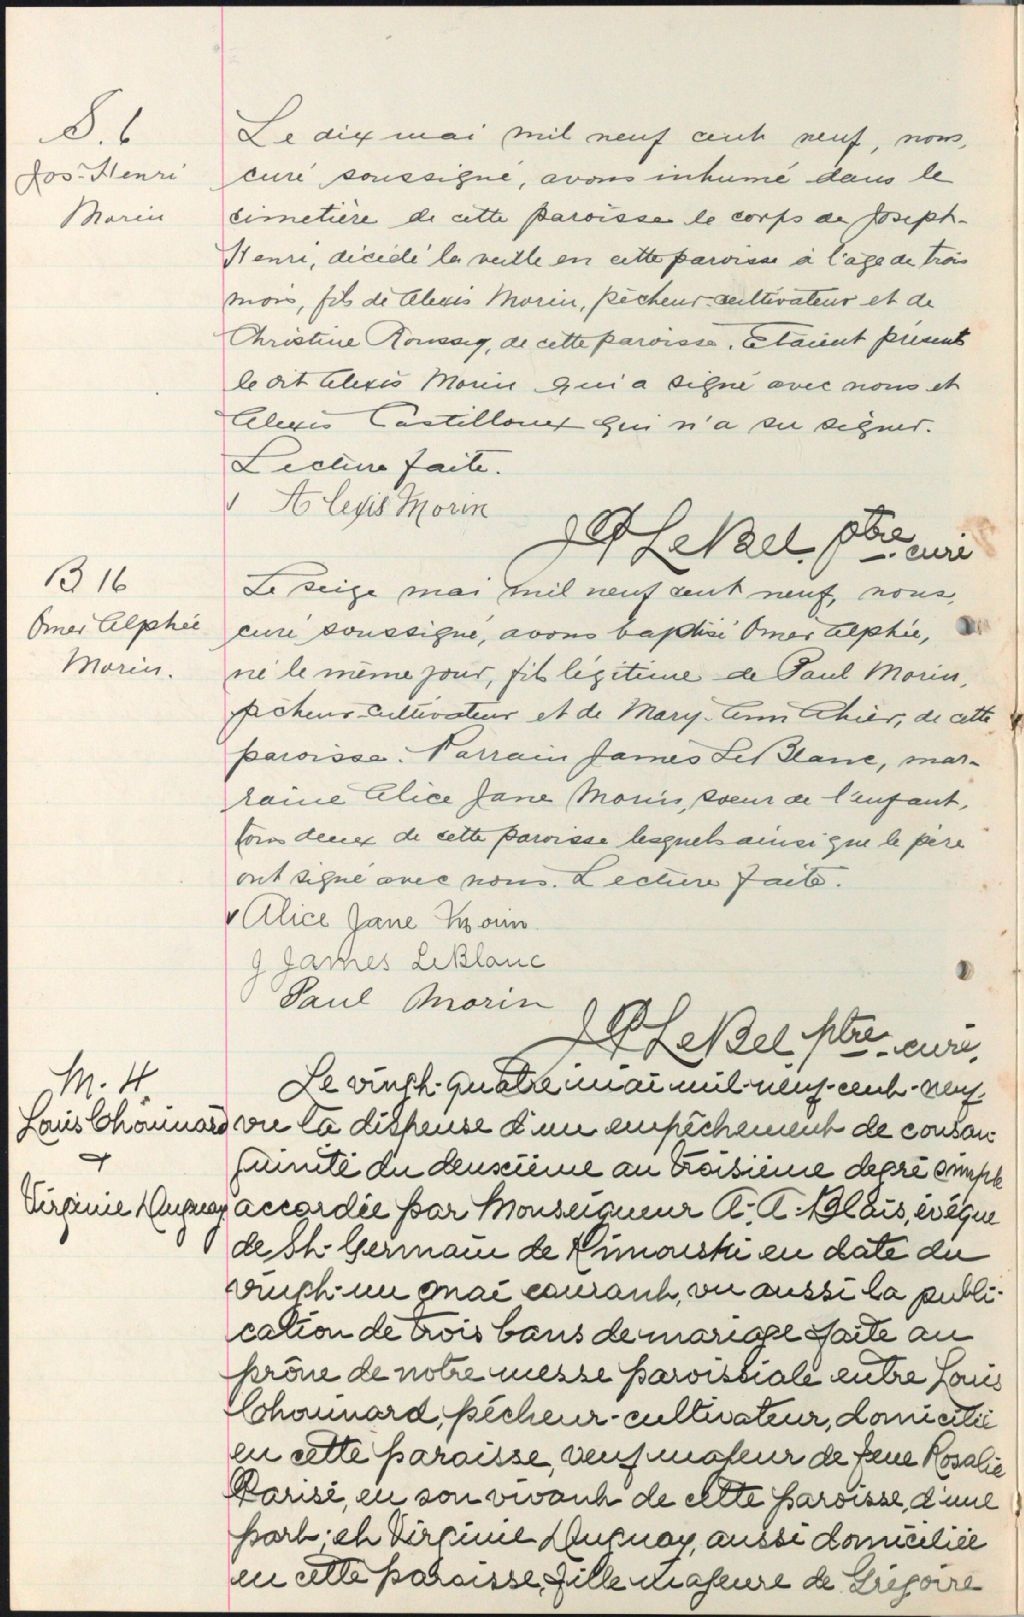 S. 6
Jos-Henri
Morin
Le dix mai mil neuf cent neuf, nous,
curé soussigné, avons inhumé dans le
cimetière de cette paroisse le corps de Joseph-
Henri, décédé la veille en cette paroisse à l'age de trois
mois, fils de Alexis Morin, pêcheur-cultivateur et de
Christine Roussy, de cette paroisse. Etaient présents
le dit Alexis Morin qui a signé avec nous et
Alexis Castilloux qui n'a su signer.
Lecture faite.
Alexis Morin
JP LeBel. ptre. curé
B 16
Omer Alphée
Morin.
Le seize mai mil neuf cent neuf, nous,
curé soussigné, avons baptisé Omer Alphée,
né le même jour, fils légitime de Paul Morin,
pêcheur-cultivateur et de Mary-Ann Ahier, de cette
paroisse. Parrain James LeBlanc, mar-
raine Alice Jane Morin, soeur de l'enfant,
tous deux de cette paroisse lesquels ainsi que le père
ont signé avec nous. Lecture faite.
Alice Jane Morin
J James LeBlanc
Paul Morin
JP LeBel ptre. curé.
M. 4
Louis Chouinard
+
Virginie Duguay
Le vingt-quatre mai mil-neuf-cent-neuf,
vu la dispense d'un empêchement de consan-
guinité du deuxième au troisième degré simple
accordée par Monseigneur A. A. Blais, évêque
de St-Germain de Rimouski en date du
vingt-un mai courant, vu aussi la publi-
cation de trois bans de mariage faite au
prône de notre messe paroissiale entre Louis
Chouinard, pêcheur-cultivateur, domicilié
en cette paroisse, veuf majeur de feue Rosalie
Parisé, en son vivant de cette paroisse, d'une
part; et Virginie Duguay, aussi domiciliée
en cette paroisse, fille majeure de Grégoire